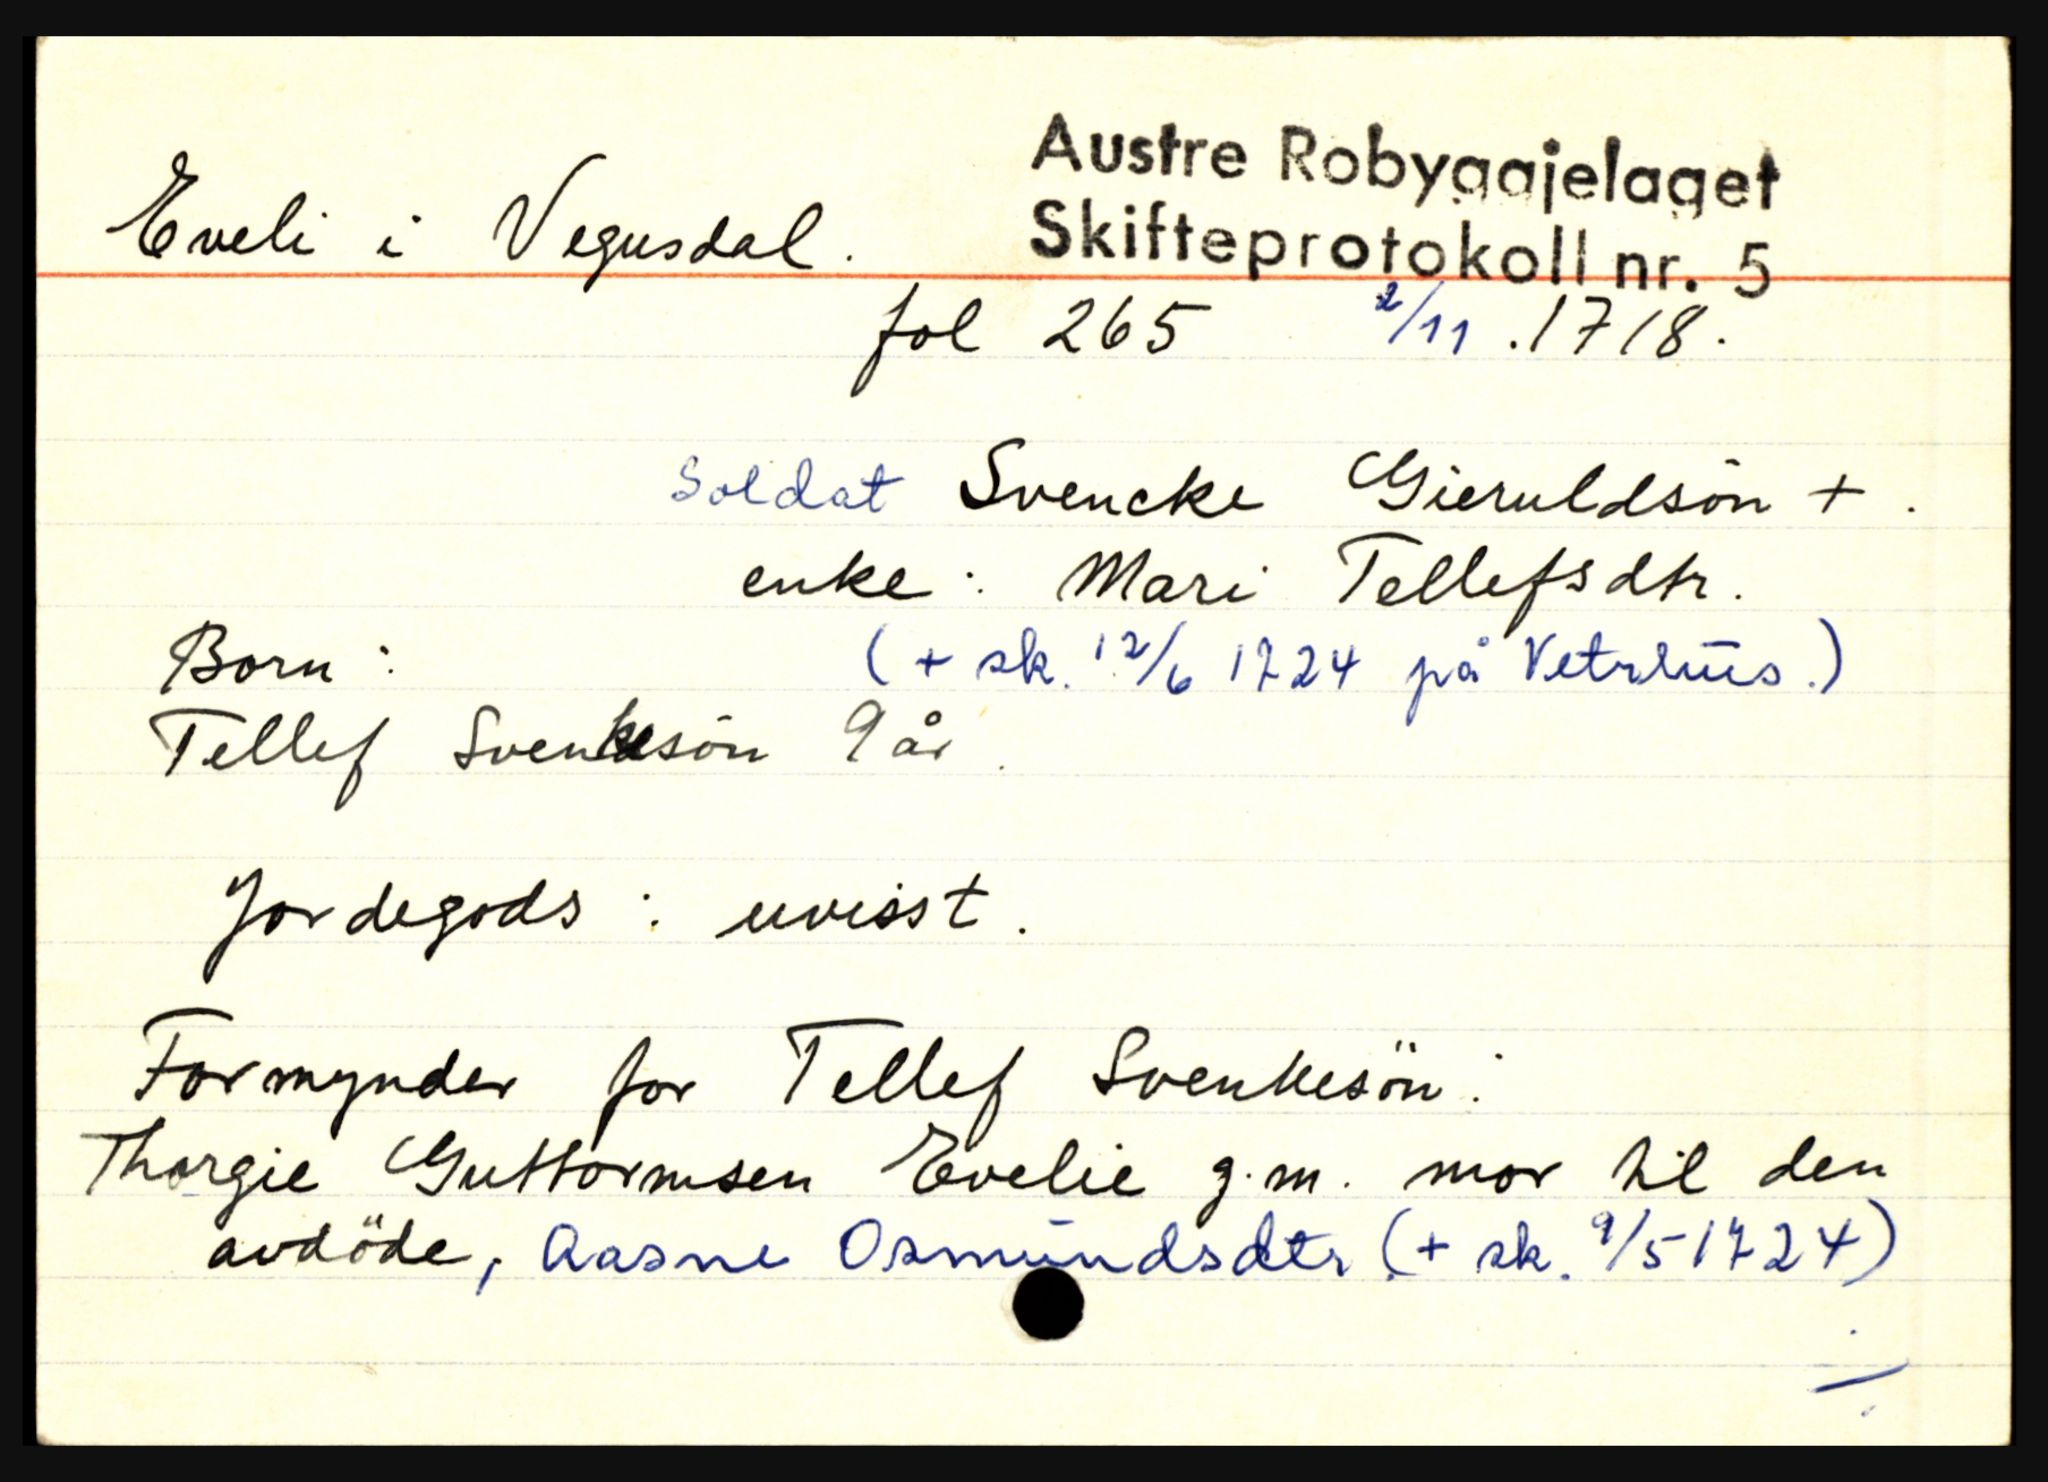 Austre Robyggjelaget
Eveli i Vegusdal.
Skifteprotokoll nr. 5
fol 265 2/11 .1718.
Soldat Svencke Gieruldsön + .
enke : Mari Tellefsdtr.
Born : (+ sk. 12/6 1724 på Vetrhūs.)
Tellef Svenkesön 9 år .
Jordegods : uvisst .
Formynder for Tellef Svenkesön :
Thorgie Guttormsen Evelie g.m. mor til den
avdöde, Aasne Osmūndsdtr (+ sk. 9/5 1724)